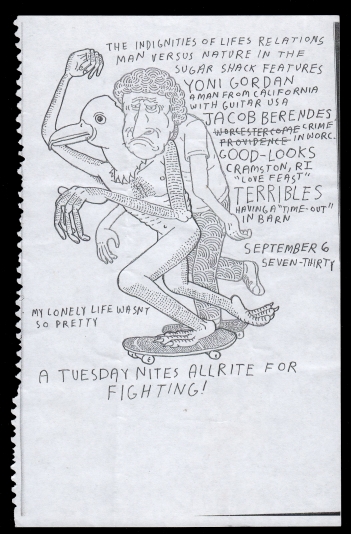 THE INDIGNITIES OF LIFES RELATIONS
MAN VERSUS NATURE IN THE
SUGAR SHACK FEATURES
YONI GORDAN
A MAN FROM CALIFORNIA
WITH GUITAR USA
JACOB BERENDES
WORCESTER COME CRIME
PROVIDENCE IN WORC.
GOOD-LOOKS
CRAMSTON, RI
"LOVE FEAST"
TERRIBLES
HAVING A "TIME-OUT"
IN BARN
SEPTEMBER 6
SEVEN-THIRTY
MY LONELY LIFE WASNT
SO PRETTY
A TUESDAY NITES ALLRITE FOR
FIGHTING!